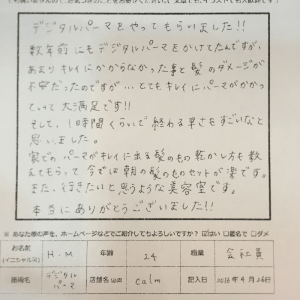 デジタルパーマをやってもらいました!!
数年前にもデジタルパーマをかけてたんですが、
あまりキレイにかからなかった事と髪のダメージが
不安だったのですが…とてもキレイにパーマがかかっ
てって大満足です!!
そして、1時間くらいで終わる早さもすごいなと
思いました。
家でのパーマがキレイに出る髪のもの乾かし方も教
えてもらって、今では朝の髪のものセットが楽です。
また、行きたいと思うような美容室です。
本当にありがとうございました!!
※あなた様の声を、ホームページなどでご紹介してもよろしいですか? ☑はい □匿名で □ダメ
お名前 (イニシャル) H.M 年齢 24 職業 会社員
施術名 デジタルパーマ 店舗名 calm 記入日 2018年4月26日